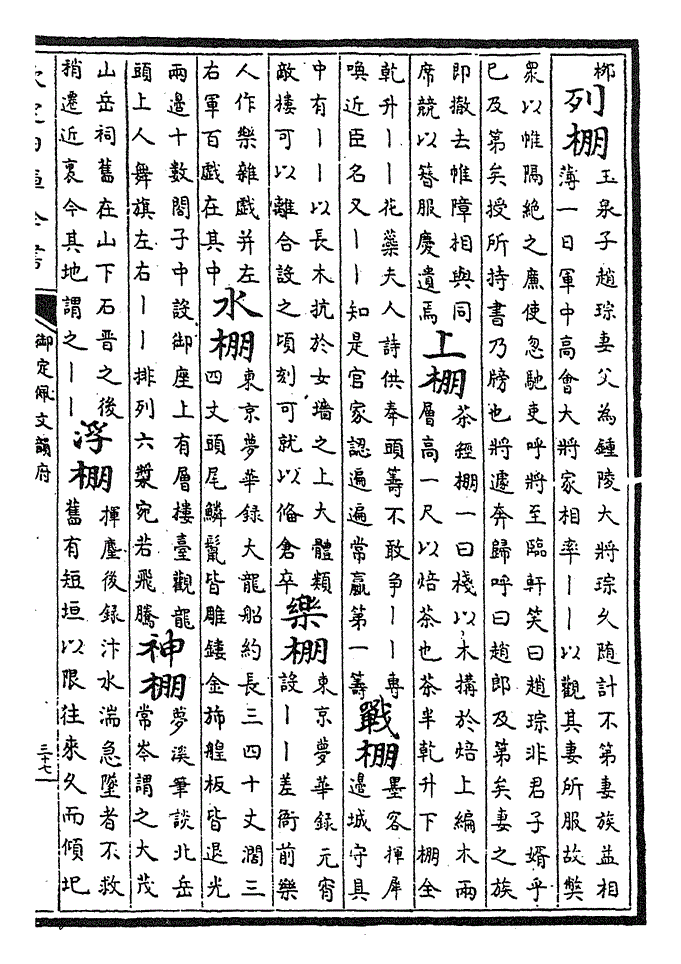 列棚
玉泉子趙琮妻父為鍾陵大將琮久隨計不第妻族益相
薄一日軍中高會大將家相率丨丨以觀其妻所服故弊
衆以帷隔絶之廉使忽馳吏呼將至臨軒笑曰趙琮非君子婿乎
已及第矣授所持書乃牓也將遽奔歸呼曰趙郎及第矣妻之族
即撤去帷障相與同
席競以簪服慶遺焉
上棚
茶經棚一曰棧以木搆於焙上編木兩
層高一尺以焙茶也茶半乾升下棚全
乾升丨丨花蘂夫人詩供奉頭籌不敢争丨丨專
喚近臣名又丨丨知是官家認遍遍常贏第一籌
戰棚
墨客揮犀
邊城守具
中有丨丨以長木抗於女墻之上大體類
敵樓可以離合設之頃刻可就以備倉卒
樂棚
東京夢華録元宵
設丨丨差衙前樂
人作樂雜戲并左
右軍百戲在其中
水棚
東京夢華録大龍船約長三四十丈濶三
四丈頭尾鱗鬛皆雕鏤金飾艎板皆退光
兩邊十數閤子中設御座上有層樓臺觀龍
頭上人舞旗左右丨丨排列六槳宛若飛騰
神棚
夢溪筆談北岳
常岑謂之大茂
山岳祠舊在山下石晉之後
稍遷近裏今其地謂之丨丨
浮棚
揮麈後録汴水湍急墜者不救
舊有短垣以限往來久而傾圮
欽定四庫全書
御定佩文韻府
三十七